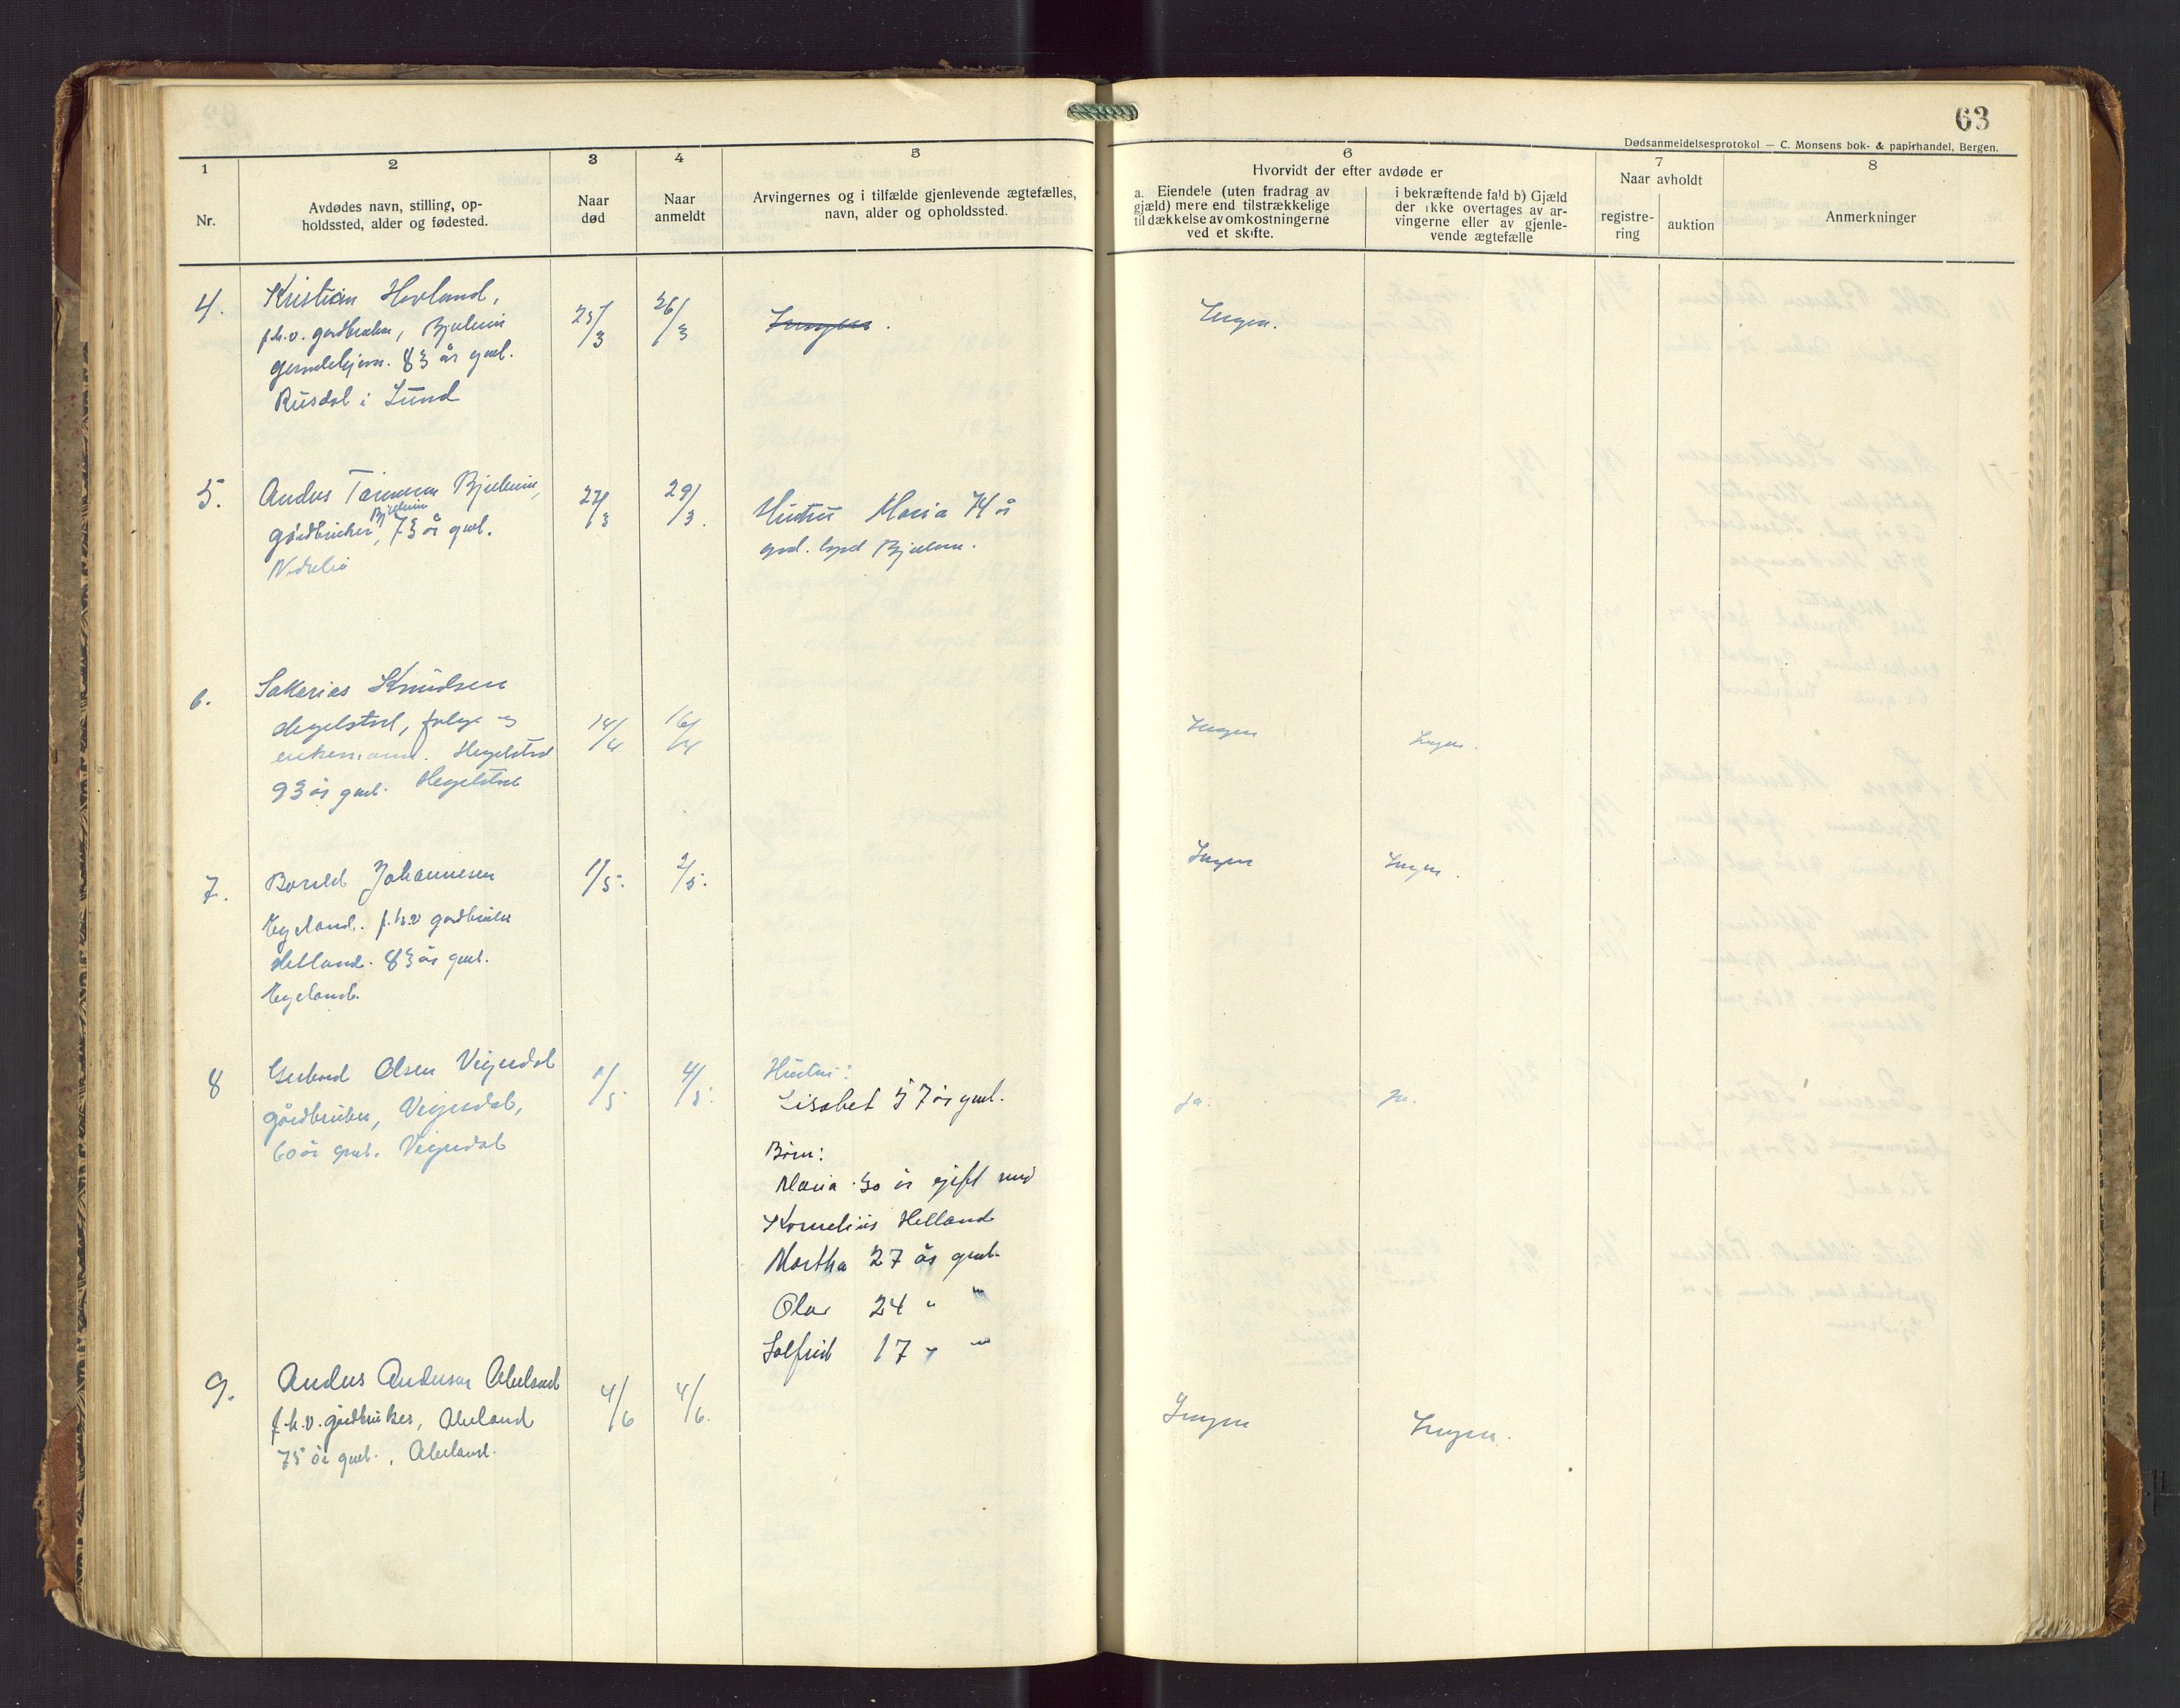 63
Dødsanmeldelsesprotokol — C. Monsens bok- & papirhandel, Bergen.
1
2
3
4
5
6
7
8
Nr.
Avdødes navn, stilling, op-
holdssted, alder og fødested.
Naar
død
Naar
anmeldt
Arvingernes og i tilfælde gjenlevende ægtefælles,
navn, alder og opholdssted.
Hvorvidt der efter avdøde er
a. Eiendele (uten fradrag av
gjæld) mere end tilstrækkelige
til dækkelse av omkostningerne
ved et skifte.
i bekræftende fald b) Gjæld
der ikke overtages av ar-
vingerne eller av gjenle-
vende ægtefælle
Naar avholdt
registre-
ring
auktion
Anmerkninger
4. Kristian Hovland, 25/3 26/3 Ingen. Ingen.
f.h.v. gardbruker,
gamlehjem. 83 år gml.
Rusdal i Lund
5. Bjuleim, 27/3 29/3. Hustru Maria 74 år
Bjuleim
gårdbruker, 73 år gml. gml. Bjuleim.
6. Sakarias Knudsen
Hegelstad, 14/4 16/4 Ingen Ingen.
enkemann. Hegelstad
93 år gml. Hegelstad
7. Johannesen 1/5. 2/5. Ingen Ingen.
Eygeland. f.h.v gardbruker
Helland. 83 år gml.
Eygeland.
8 Olsen Veijesdal 1/5 4/5. Hustru: Ja. Ja.
gårdbruker, Veijesdal, Lisabet 57 år gml.
60 år gml. Veijesdal
Børn:
Maria 30 år gift med
Kornelius Helland
Martha 27 år gml.
Olav 24 " "
Solfrid 17 " "
9. Andersen Abeland 4/6 4/6. Ingen Ingen.
f.h.v. gårdbruker, Abeland
75 år gml., Abeland.